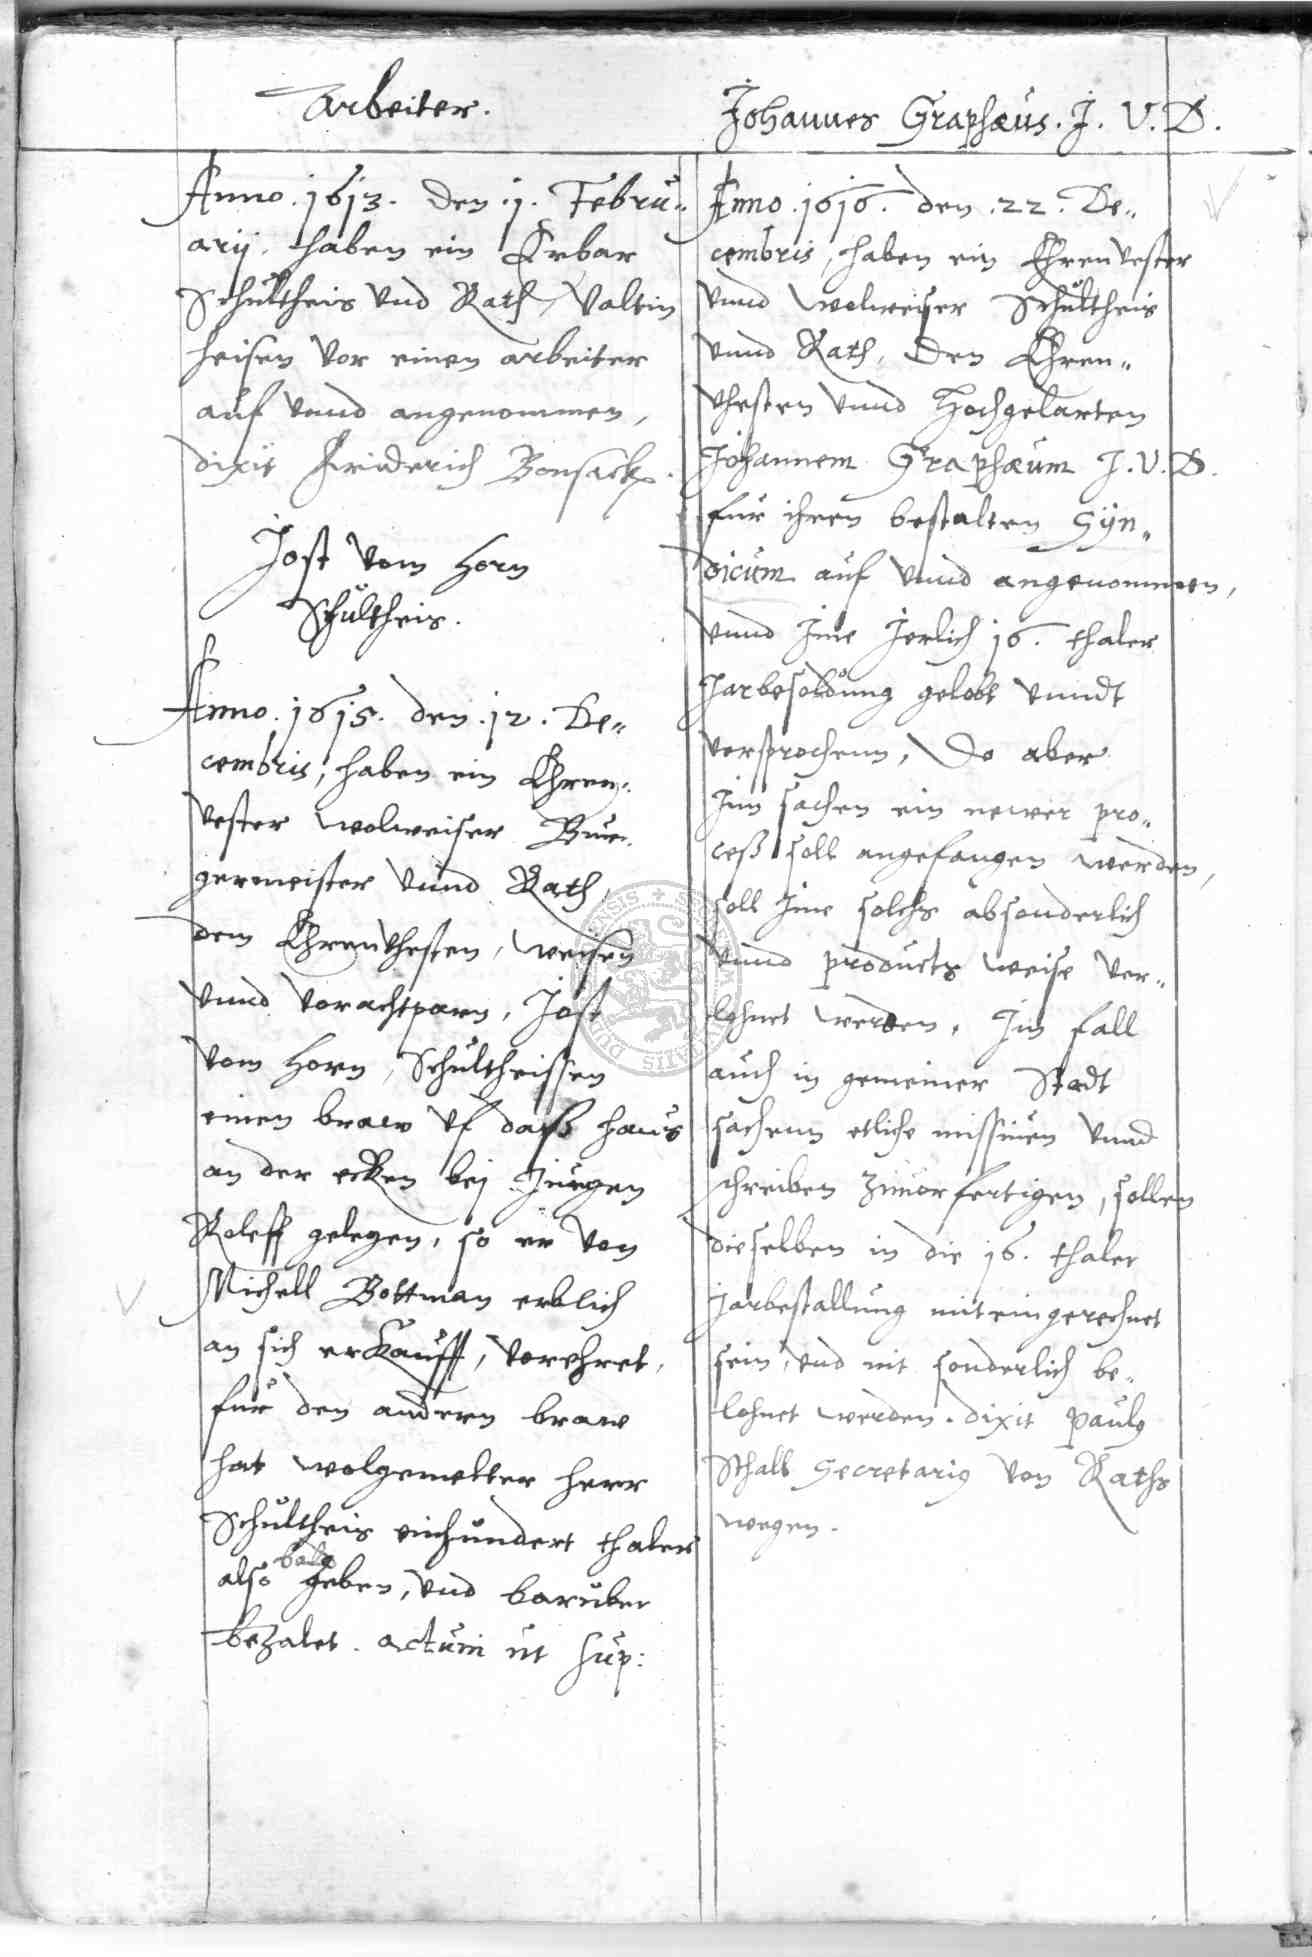 Arbeiter.
Anno. 1613. den .1. Febru„
arij. haben ein Erbar
Schultheis vnd Rath, Valtin
heisen vor einen arbeiter
auf vnnd angenommen,
dixit Friderich Bonsack.
Jost vom Horn
Schultheis.
Anno. 1615. den .12. De„
cembris, haben ein Ehren„
vester wolweiser Bur„
germeister vnnd Rath,
dem Ehrenvhesten, weisen
vnnd vorachtparn, Jost
vom Horn, Schultheissen
einen braw vf daß haus
an der ecken bej Jurgen
Roleff gelegen, so er von
Michell Bottman erblich
an sich erkaufft, vorehret,
für den andern braw
hat wolgemelter herr
Schultheis einhundert thaler
also balt geben, vnd baruber
bezalet. actum ut sup:
Johannes Graphæus. J. V. D.
Anno .1616. den .22. De„
cembris, haben ein Ehrenvester
vnnd wolweiser Schultheis
vnnd Rath, den Ehren„
vhesten vnnd Hochgelarten
Johannem Graphæum J. V. D.
für ihren bestalten Syn„
dicum auf vnnd angenommen,
vnnd Jme Jerlich 16. thaler
Jarbesoldung gelobt vnndt
versprochenn, Do aber
Jnn sachen ein newer pro„
ceß soll angefangen werden,
soll Jme solchs absonderlich
vnnd products weise ver„
lohnet werden, Jm fall
auch in gemeiner Stadt
sachenn etliche missiuen vnnd
schreiben zuuorfertigen, sollen
dieselben in die 16. thaler
Jarbestallung mit eingerechnet
sein, vnd nit sonderlich be„
lohnet werden. dixit Paulg
Schalb Secretarig von Raths
wegen.